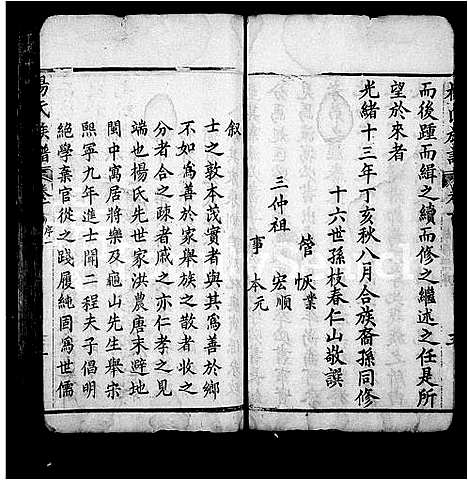 而後踵而緝之續而修之繼述之任是所
望於來者
光緒十三年丁亥秋八月合族裔孫同修
十六世孫枝春仁山敬譔
管 恢業
三仲祖 宏順
事 本元
楊氏族譜
叙
士之敦本茂實者與其為善於鄉
不如為善於家舉族之散者收之
分者合之疎者戚之亦仁孝之見
端也楊氏先世家洪農唐末避地
閩中寓居將樂及龜山先生舉宋
熙寧九年進士聞二程夫子倡明
絕學棄官從之踐履純固為世儒
楊氏族譜 卷 序 一